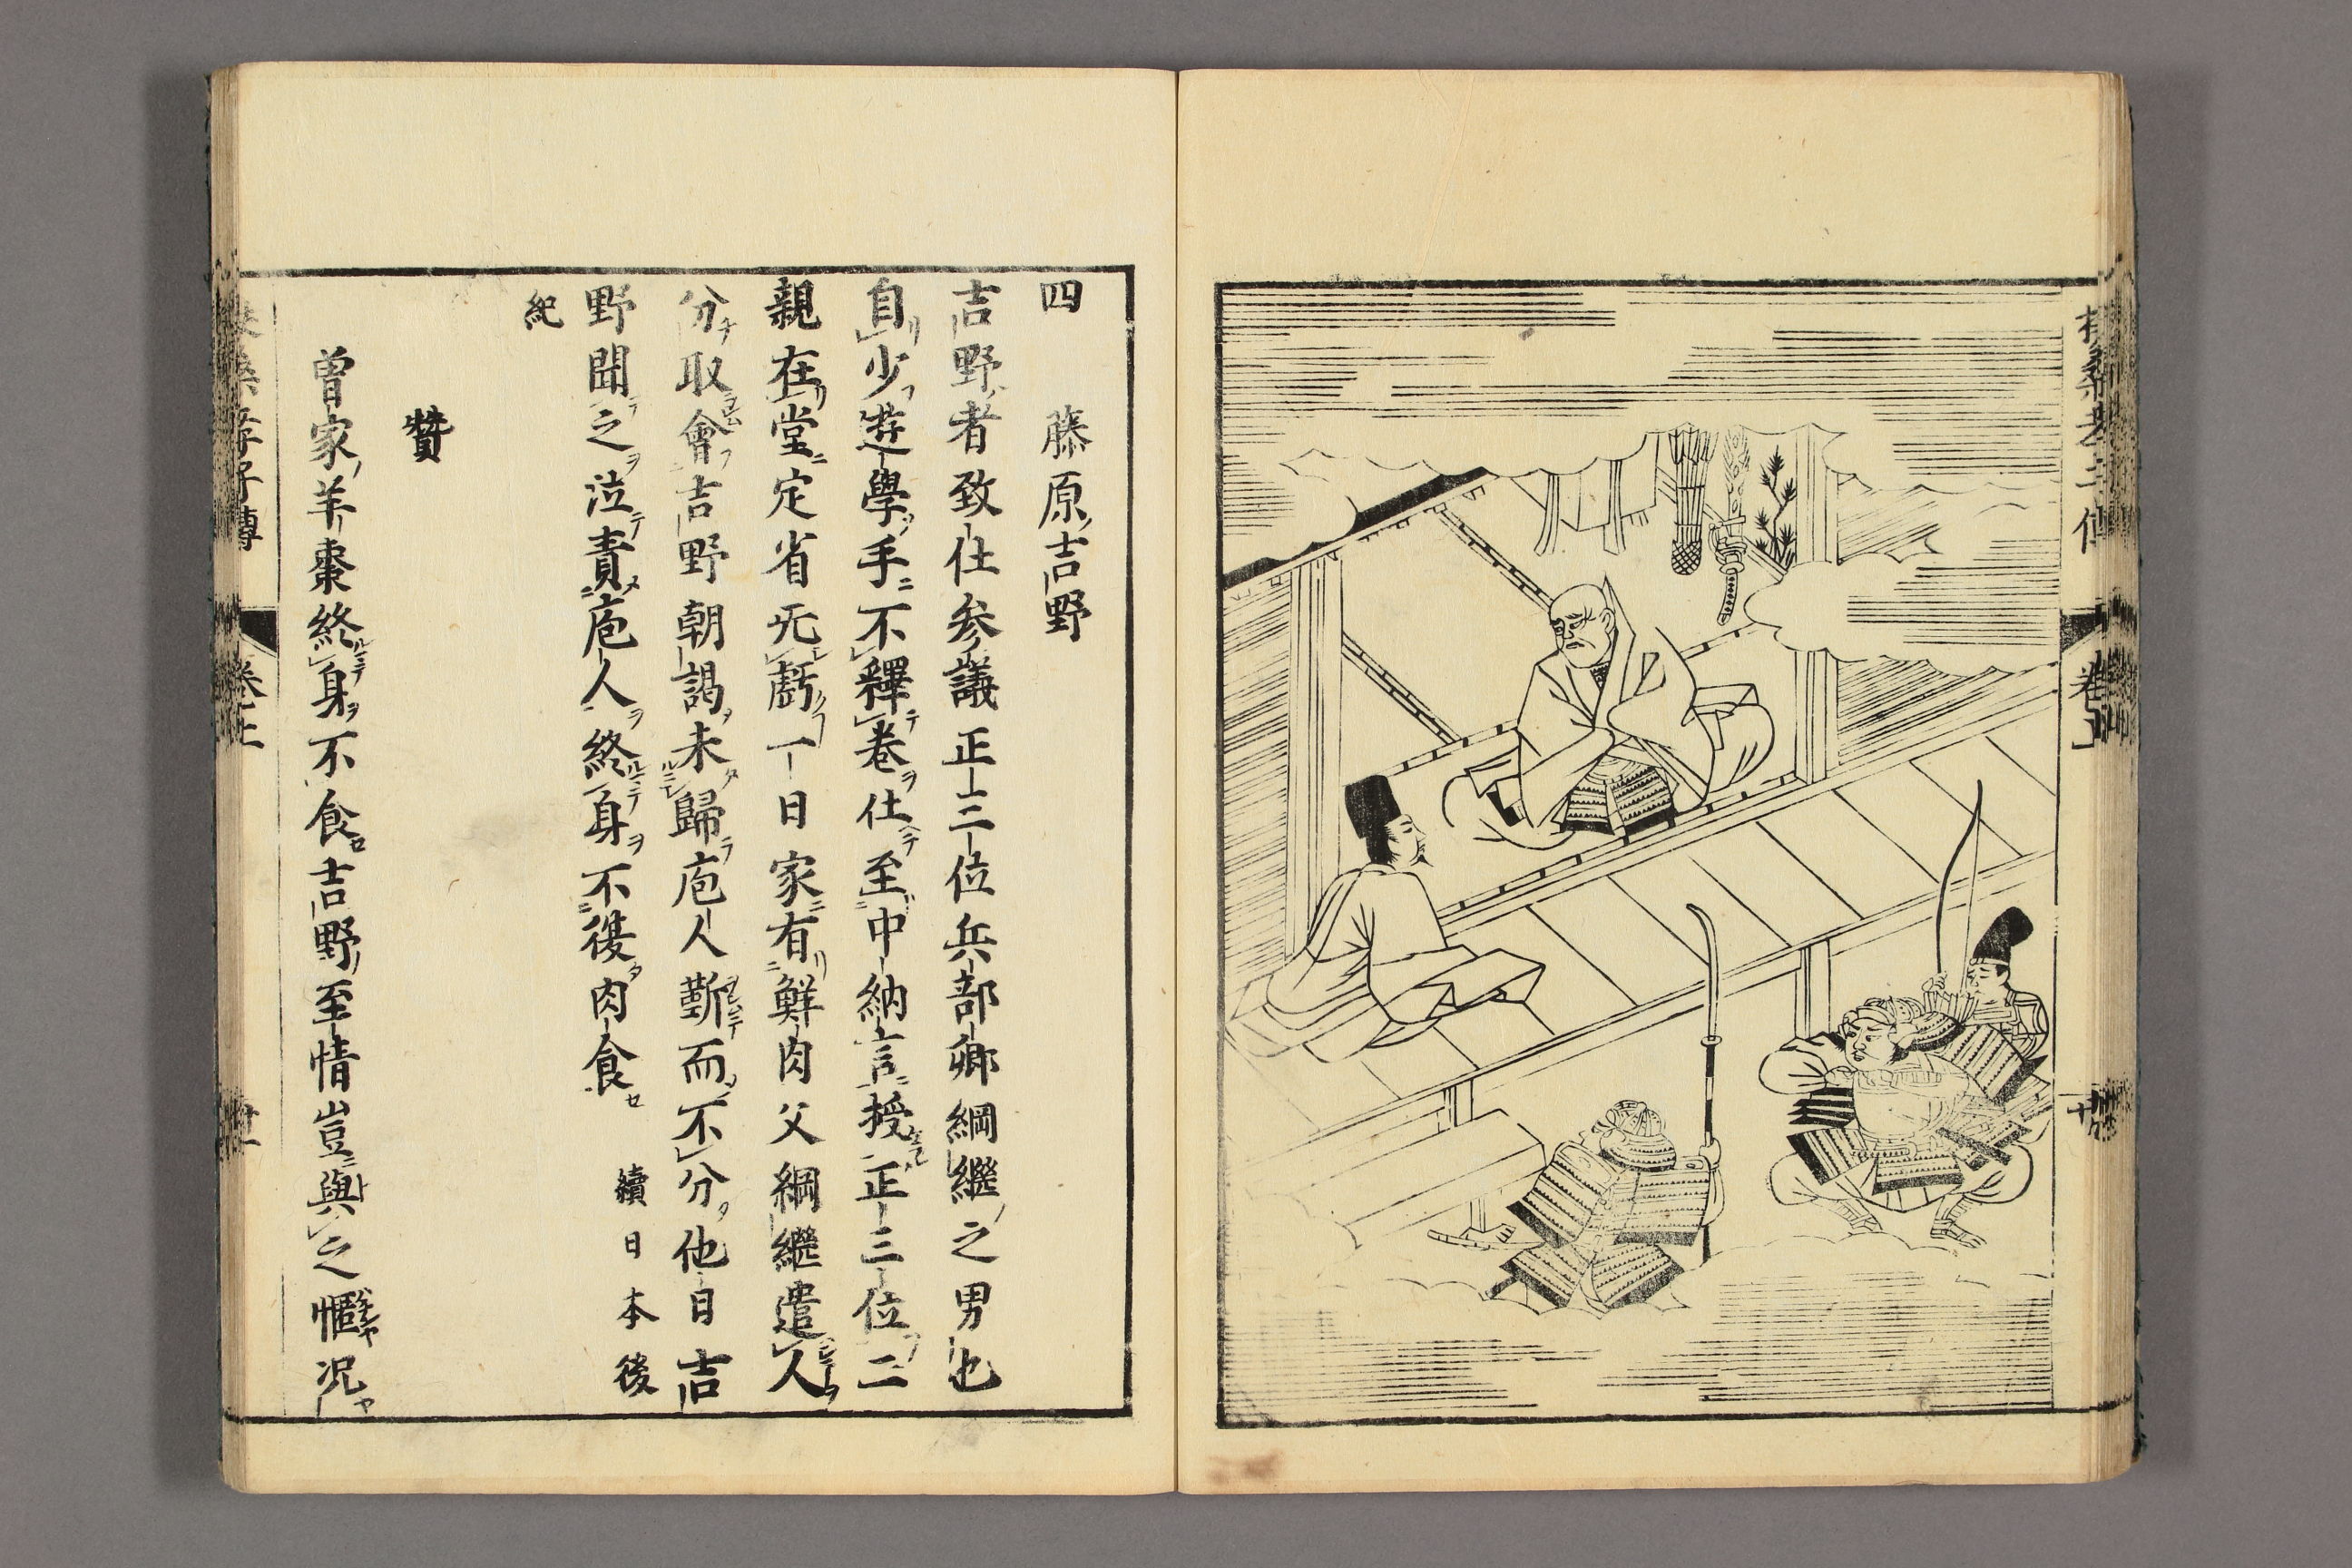 四 藤原吉野
吉野者致仕参議正三位兵部卿綱繼之男也
自少遊學手不釋卷仕至中納言授正三位二
親在堂定省无虧一日家有鮮肉父綱繼遣人
分取會吉野朝謁未歸庖人靳而不分他日吉
野聞之泣責庖人終身不復肉食 續日本後
紀
贊
曽家羊棗終身不食吉野至情豈與之慨况
孝子傳 卷上 廿一